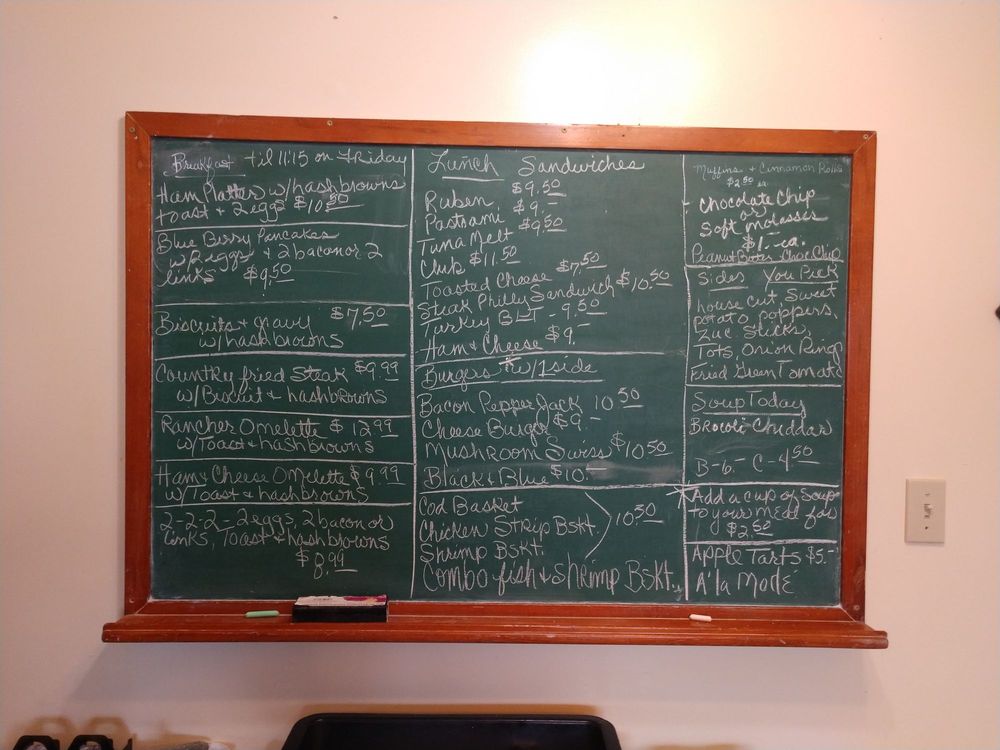 Breakfast til 11:15 on Friday
Ham Platter w/hashbrowns
toast + 2 eggs $10.50
Blue Berry Pancakes
w/2 eggs + 2 bacon or 2
links $9.50
Biscuits + gravy $7.50
w/hashbrowns
Country fried Steak $9.99
w/Biscuit + hashbrowns
Rancher Omelette $12.99
w/Toast + hashbrowns
Ham + Cheese Omelette $9.99
w/Toast + hashbrowns
2-2-2- 2 eggs, 2 bacon or
links, Toast + hashbrowns
$8.99
Lunch Sandwiches
Ruben $9.50
Pastrami $9.-
Tuna Melt $9.50
Club $11.50
Toasted Cheese $7.50
Steak Philly Sandwich $10.50
Turkey BLT - 9.50
Ham + Cheese $9.-
Burgers w/1 side
Bacon Pepper Jack 10.50
Cheese Burger $9.-
Mushroom Swiss $10.50
Black + Blue $10.-
Cod Basket
Chicken Strip Bskt. 10.50
Shrimp Bskt.
Combo fish + Shrimp Bskt.
Muffins + Cinnamon Rolls
$2.50 ea
Chocolate Chip
or
Soft molasses
$1.- ea.
Peanut Butter Choc Chip
Sides You Pick
house cut, Sweet
potato poppers,
Zuc Sticks,
Tots, Onion Rings
Fried Green Tomato
Soup Today
Brocoli Cheddar
B-6.- C-4.50
* Add a cup of Soup
to your meal for
$2.50
Apple Tarts $5.-
A'la Mode